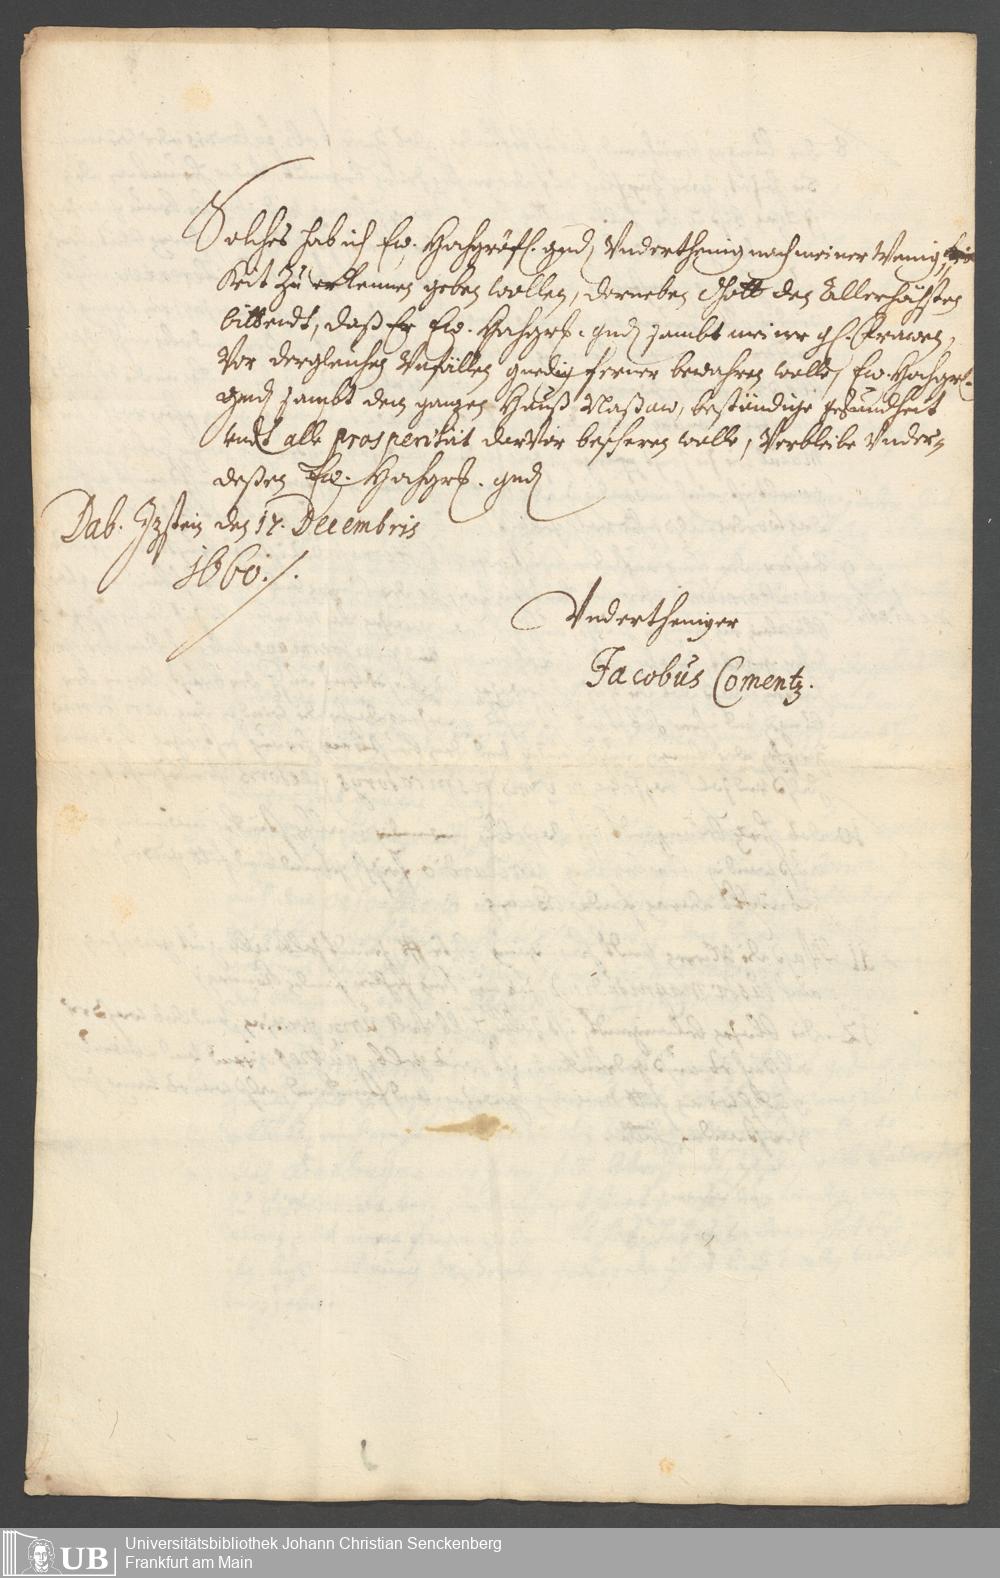 Solches hab ich Ew. Hochgräfl. gnd. Vnderthenig nach meiner Wenig,
Keit Zu erkennen geben wollen, darneben Gott den Allerhöchsten
bittendt, daß Er Ew. Hochgrf. gnd. sambt meiner gl. Frawen,
Vor dergleichen Vnfällen gnedig ferner bewahren wolle, Ew. Hochgrf.
gnd. sambt dem gantzen Hauß Naßaw, beständige gesundheit
vndt alle prosperität darvor bescheren wolle, Verbleibe Vnder-
deßen Ew. Hochgrf. gnd.
Dab. Itzstein den 17. Decembris
1660./.
Vndertheniger
Jacobus Comentz.
UB
Universitätsbibliothek Johann Christian Senckenberg
Frankfurt am Main